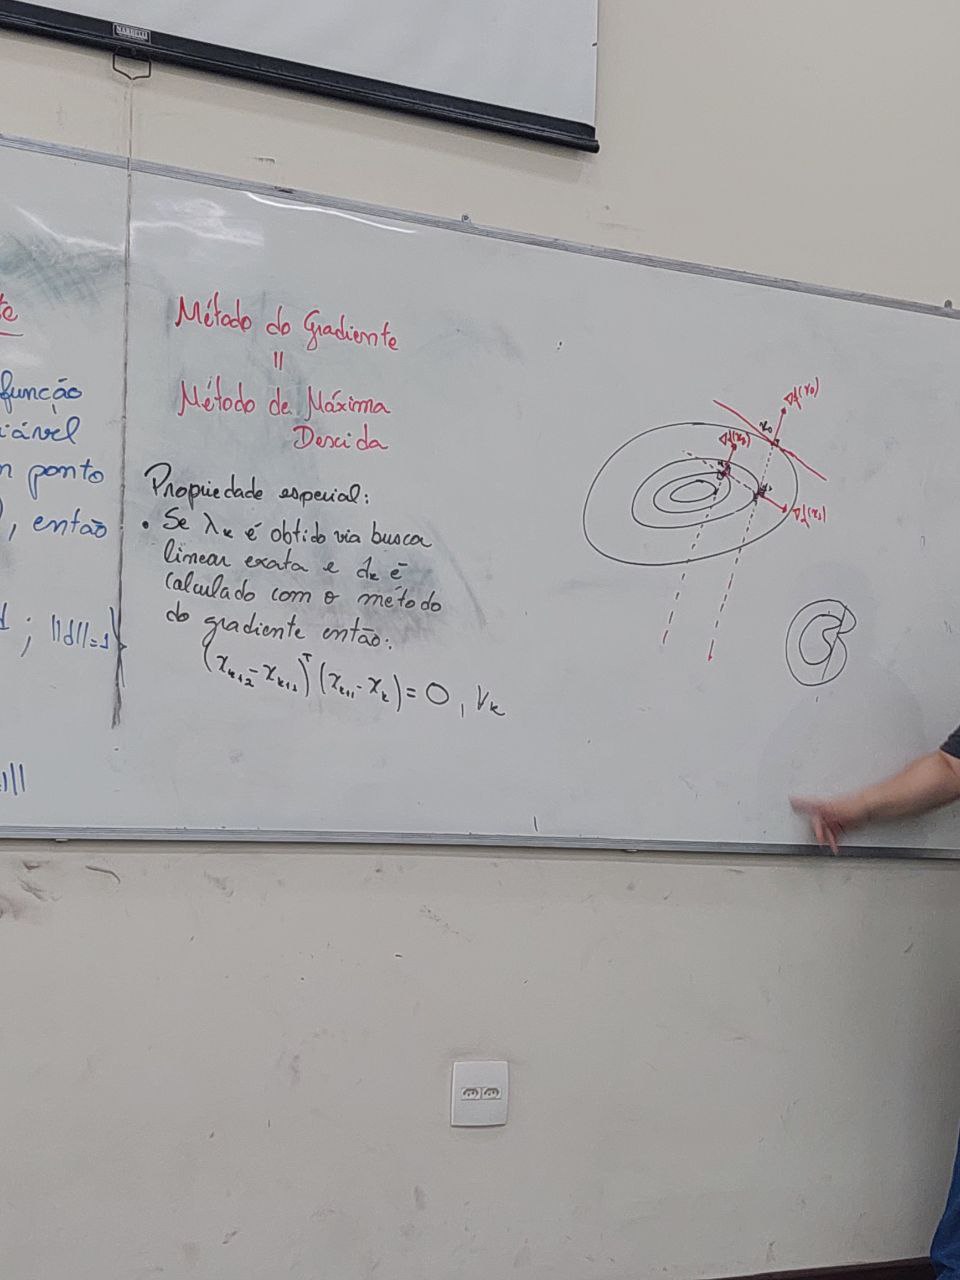 NARDELLI
te
função
iável
n ponto
, então
; ||d||=1}
||
Método do Gradiente
=
Método de Máxima
Descida
Propriedade especial:
• Se λₖ é obtido via busca
linear exata e dₖ é
calculado com o método
do gradiente então:
(xₖ₊₂ - xₖ₊₁)ᵀ (xₖ₊₁ - xₖ) = 0, ∀ₖ
∇f(x₀)
x₀
∇f(x₂)
x₂
x₁
∇f(x₁)